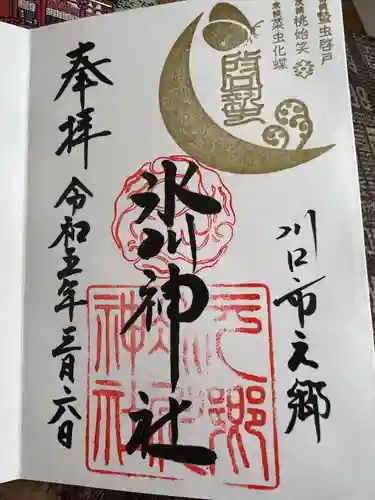 蟄虫啓戸
桃始笑
菜虫化蝶
啓蟄
川口市元郷
氷川神社
元郷氷川神社
奉拝
令和五年三月六日